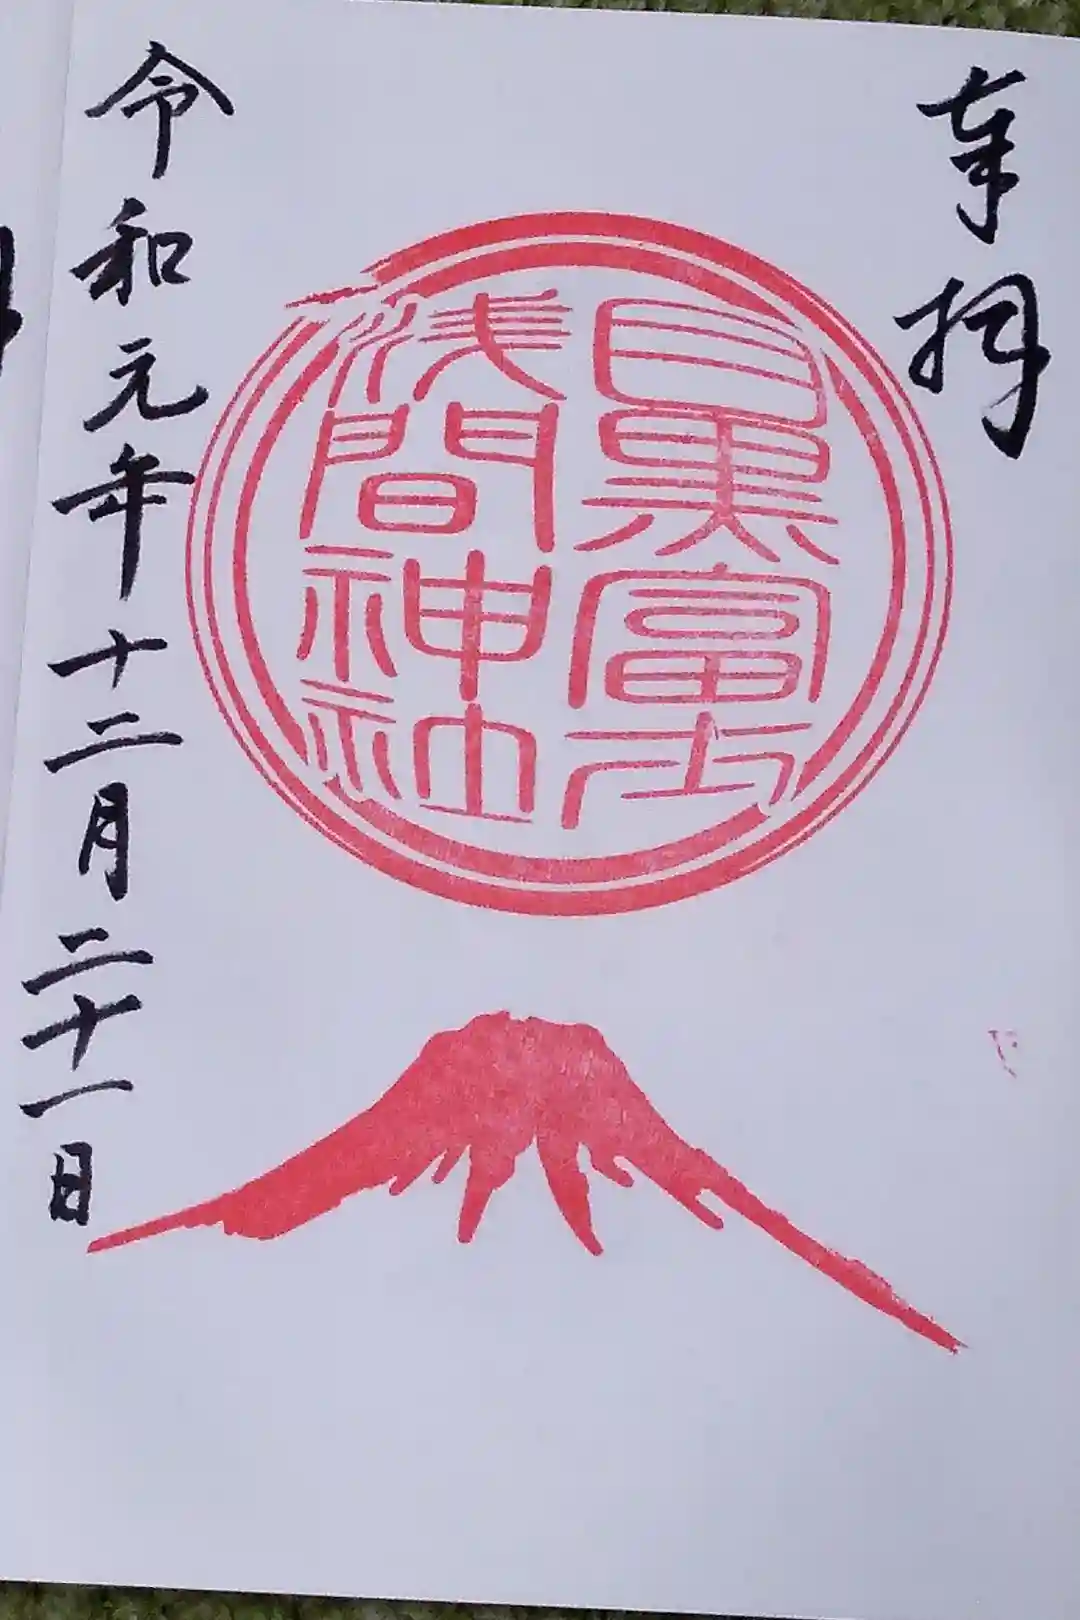 奉拝
目黒富士
浅間神社
令和元年十二月二十一日